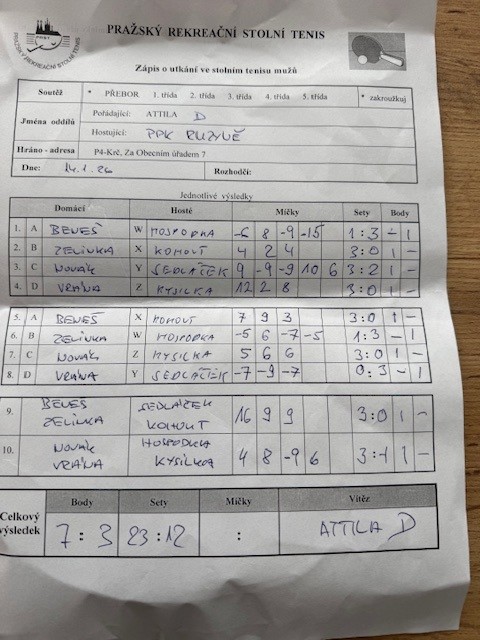 PRAŽSKÝ REKREAČNÍ STOLNÍ TENIS
PRAŽSKÝ REKREAČNÍ STOLNÍ TENIS
Zápis o utkání ve stolním tenisu mužů
Soutěž * PŘEBOR 1. třída 2. třída 3. třída 4. třída 5. třída * zakroužkuj
Jména oddílů Pořádající: ATTILA D
Hostující: PPK RUZYNĚ
Hráno - adresa P4-Krč, Za Obecním úřadem 7
Dne: 14.1.26 Rozhodčí:
Jednotlivé výsledky
Domácí Hosté Míčky Sety Body
1. A BENEŠ W HOSPODKA -6 8 -9 -15 1:3 - 1
2. B ZELINKA X KOHOUT 4 2 4 3:0 1 -
3. C NOVÁK Y SEDLÁČEK 9 -9 -9 10 6 3:2 1 -
4. D VRÁNA Z KYSILKA 12 2 8 3:0 1 -
5. A BENEŠ X KOHOUT 7 9 3 3:0 1 -
6. B ZELINKA W HOSPODKA -5 6 -7 -5 1:3 - 1
7. C NOVÁK Z KYSILKA 5 6 6 3:0 1 -
8. D VRÁNA Y SEDLÁČEK -7 -9 -7 0:3 - 1
9. BENEŠ SEDLÁČEK 16 9 9 3:0 1 -
ZELINKA KOHOUT
10. NOVÁK HOSPODKA 4 8 -9 6 3:1 1 -
VRÁNA KYSILKA
Celkový výsledek Body Sety Míčky Vítěz
7:3 23:12 : ATTILA D